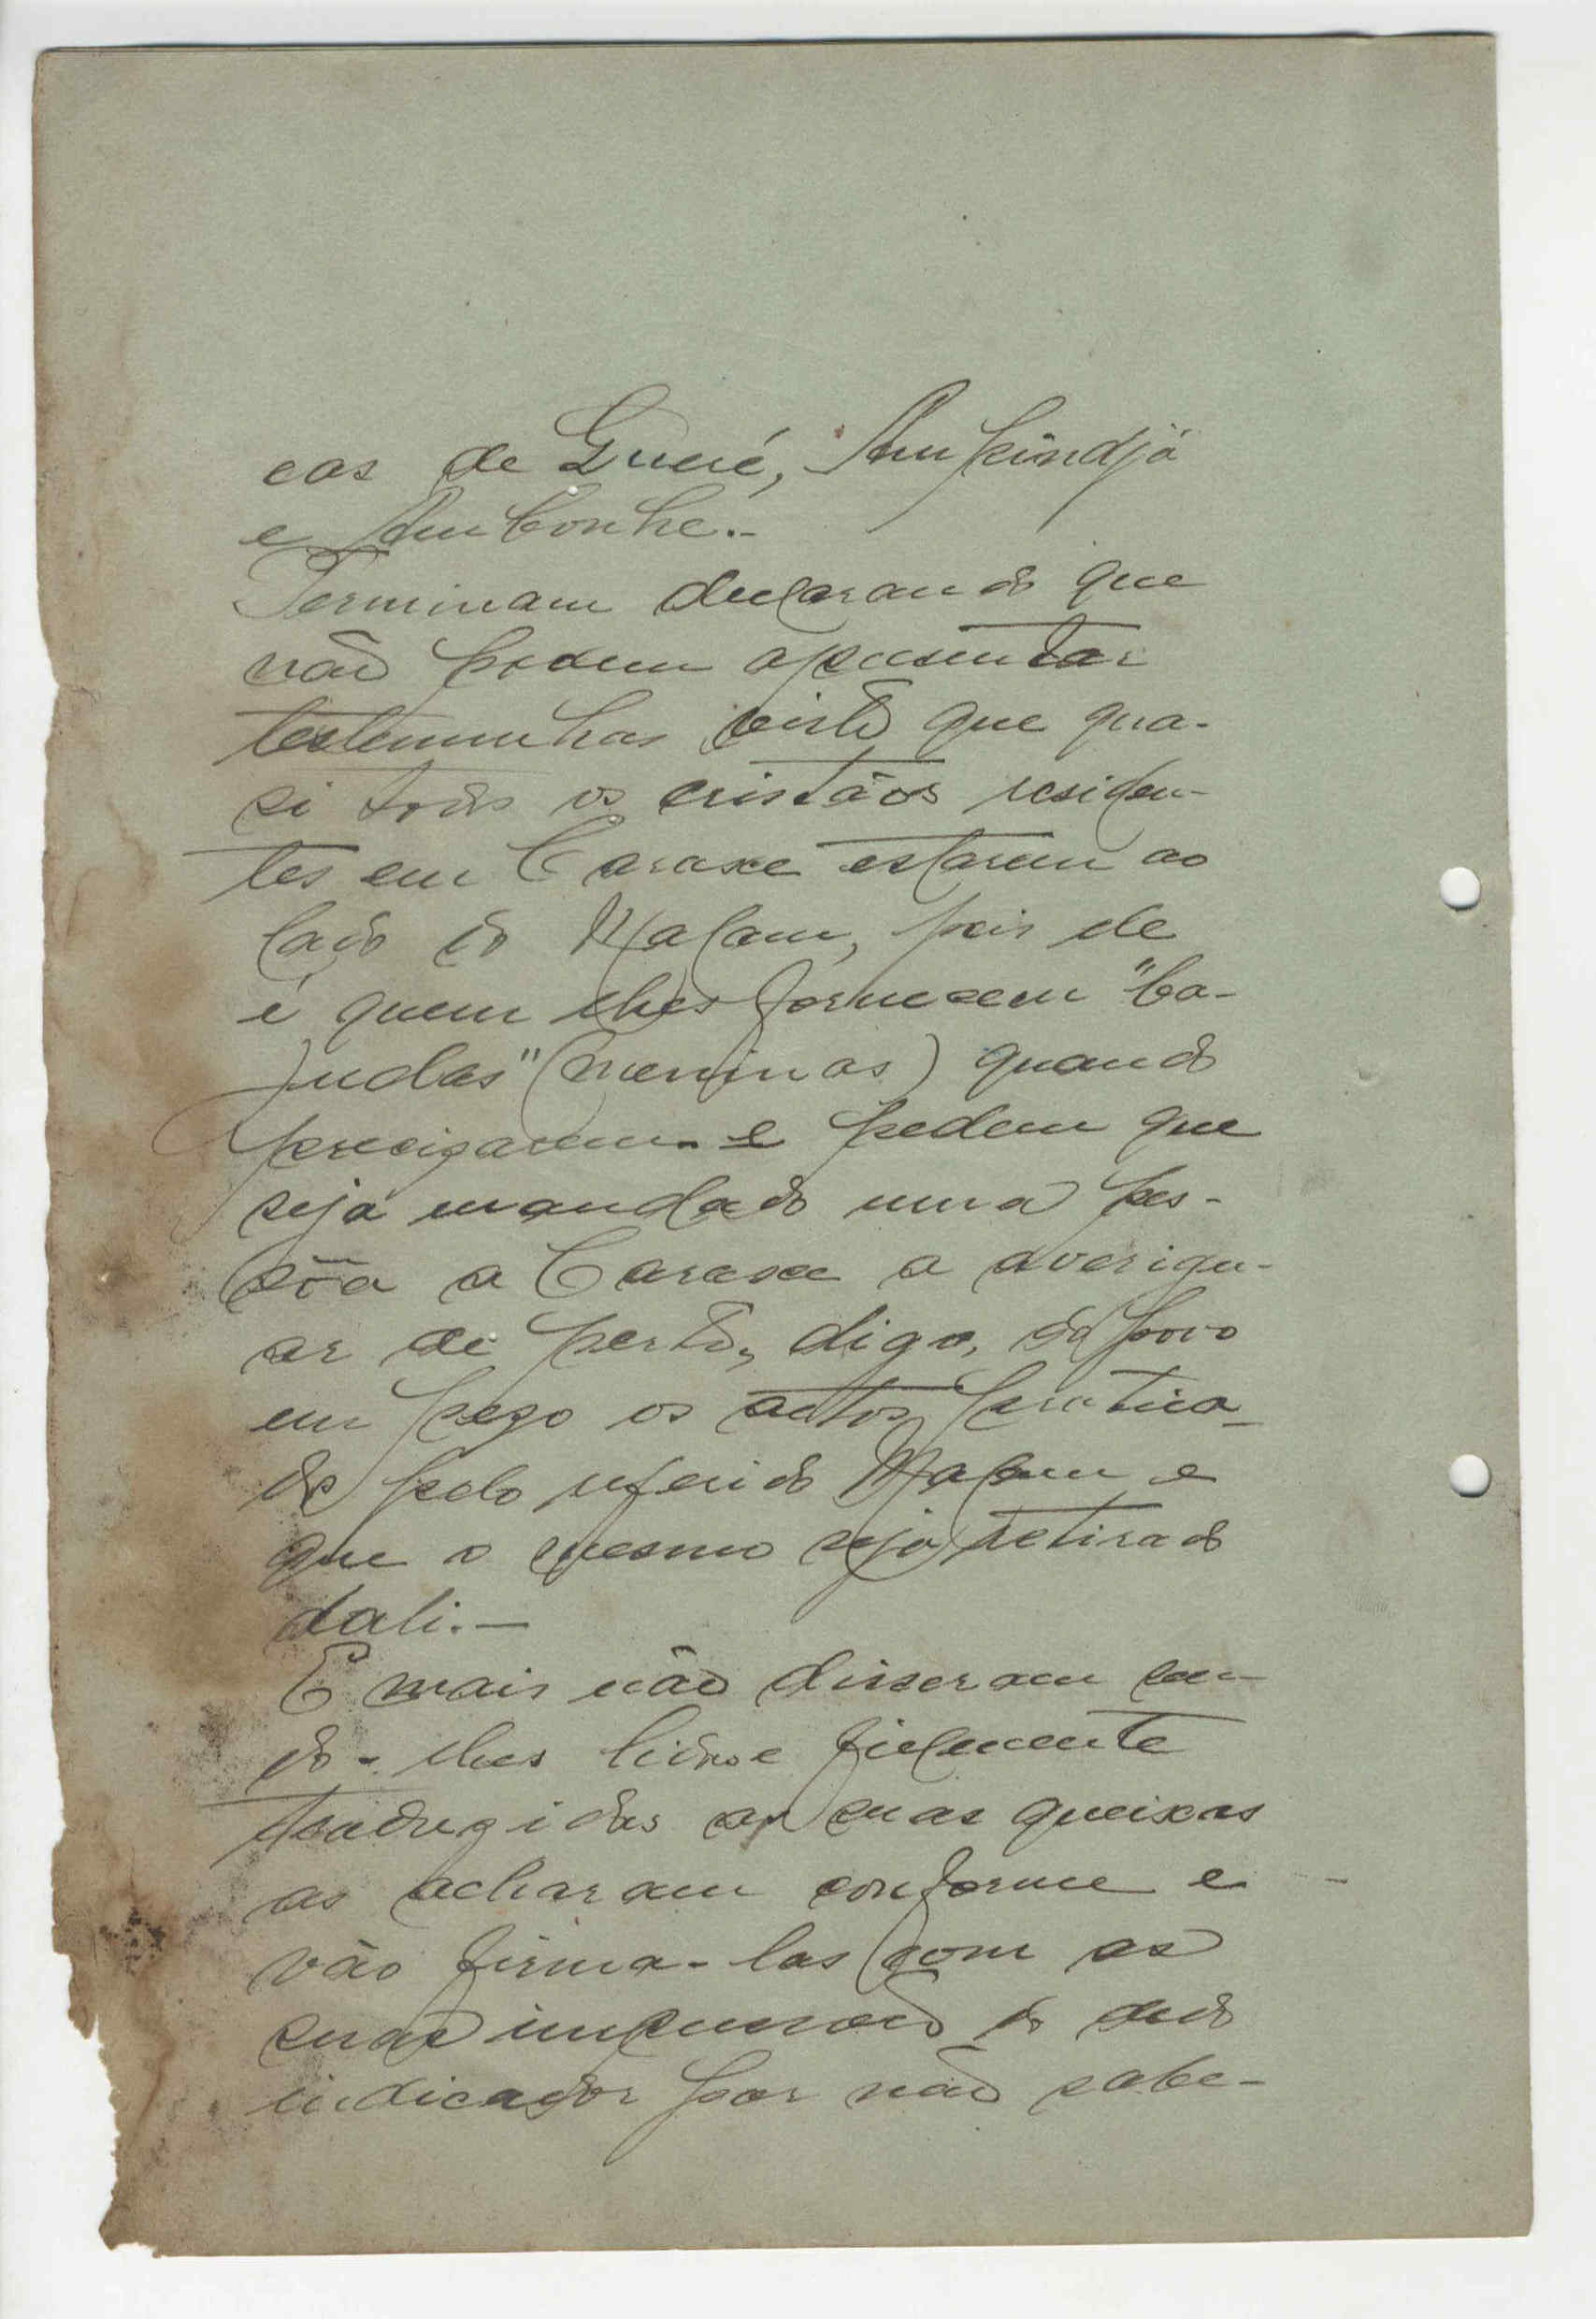 cas de Gueré,
e
Terminam declarando que
não podem apresentar
testemunhas visto que qua-
si todos os cristãos residen-
tes em Caraxe estarem ao
lado do Malam, pois ele
é quem lhes fornecem "ba-
judas" (meninas) quando
precisarem - e pedem que
seja mandado uma pes-
sôa a Caraxe a averigu-
ar de perto, digo, do povo
em pezo os actos pratica-
do pelo referido Malam e
que o mesmo seja retirado
dali.—
E mais não disseram sen-
do-lhes lido e fielmente
traduzidos as suas queixas
as acharam conforme e
vão firma-las com as
suas impressão do dedo
indicador por não sabe-